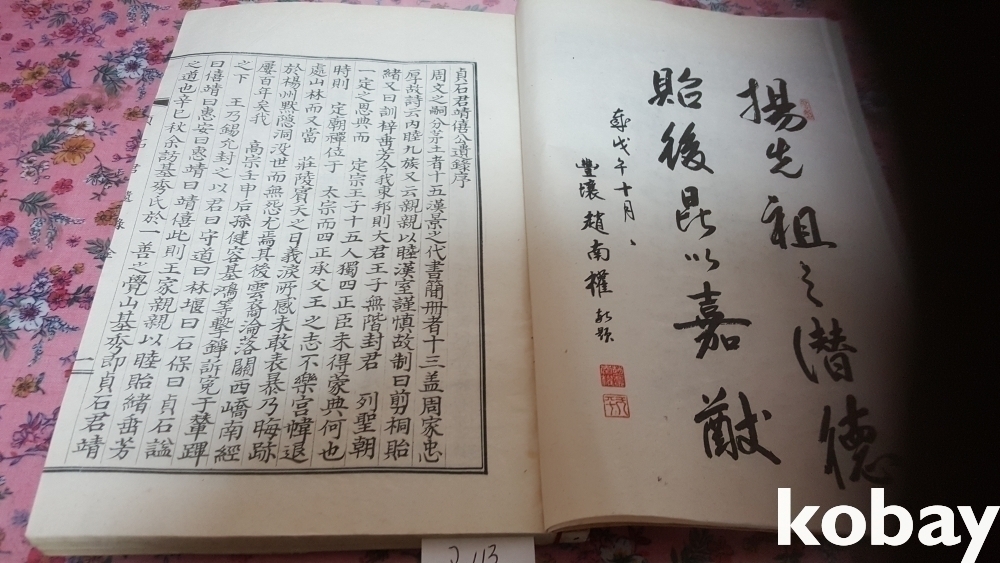 揚先祖之潛德
貽後昆以嘉猷
歲戊午十月
豐壤趙南權 敬題
貞石君靖僖公遺錄序
周文之嗣分茅王者十五漢景之代書簡冊者十三盖周家忠
厚故詩云內睦九族又云親親以睦漢室謹慎故制曰剪桐貽
緒又曰訓梓畨芳今我東邦則大君王子無階封君 列聖朝
一定之恩典而 定宗王子十五人獨四正臣未得蒙典何也
時則 定朝禪位于 太宗而四正承父王之志不樂宮幃退
處山林而又當 莊陵賓天之日義淚所感未敢表暴乃晦跡
於楊州默隱洞沒世而無怨尤焉其後雲裔淪落關西嶠南經
屢百年矣我 高宗壬申后孫健容基鴻等擊錚訴寃于輦蹕
之下 王乃錫允封之以君曰守道曰林堰曰石保曰貞石諡
曰僖靖曰惠安曰惠靖曰靖僖此則王家親親以睦貽緒畨芳
之道也辛巳秋余訪基秀氏於一善之覺山基秀即貞石君靖
一
kobay